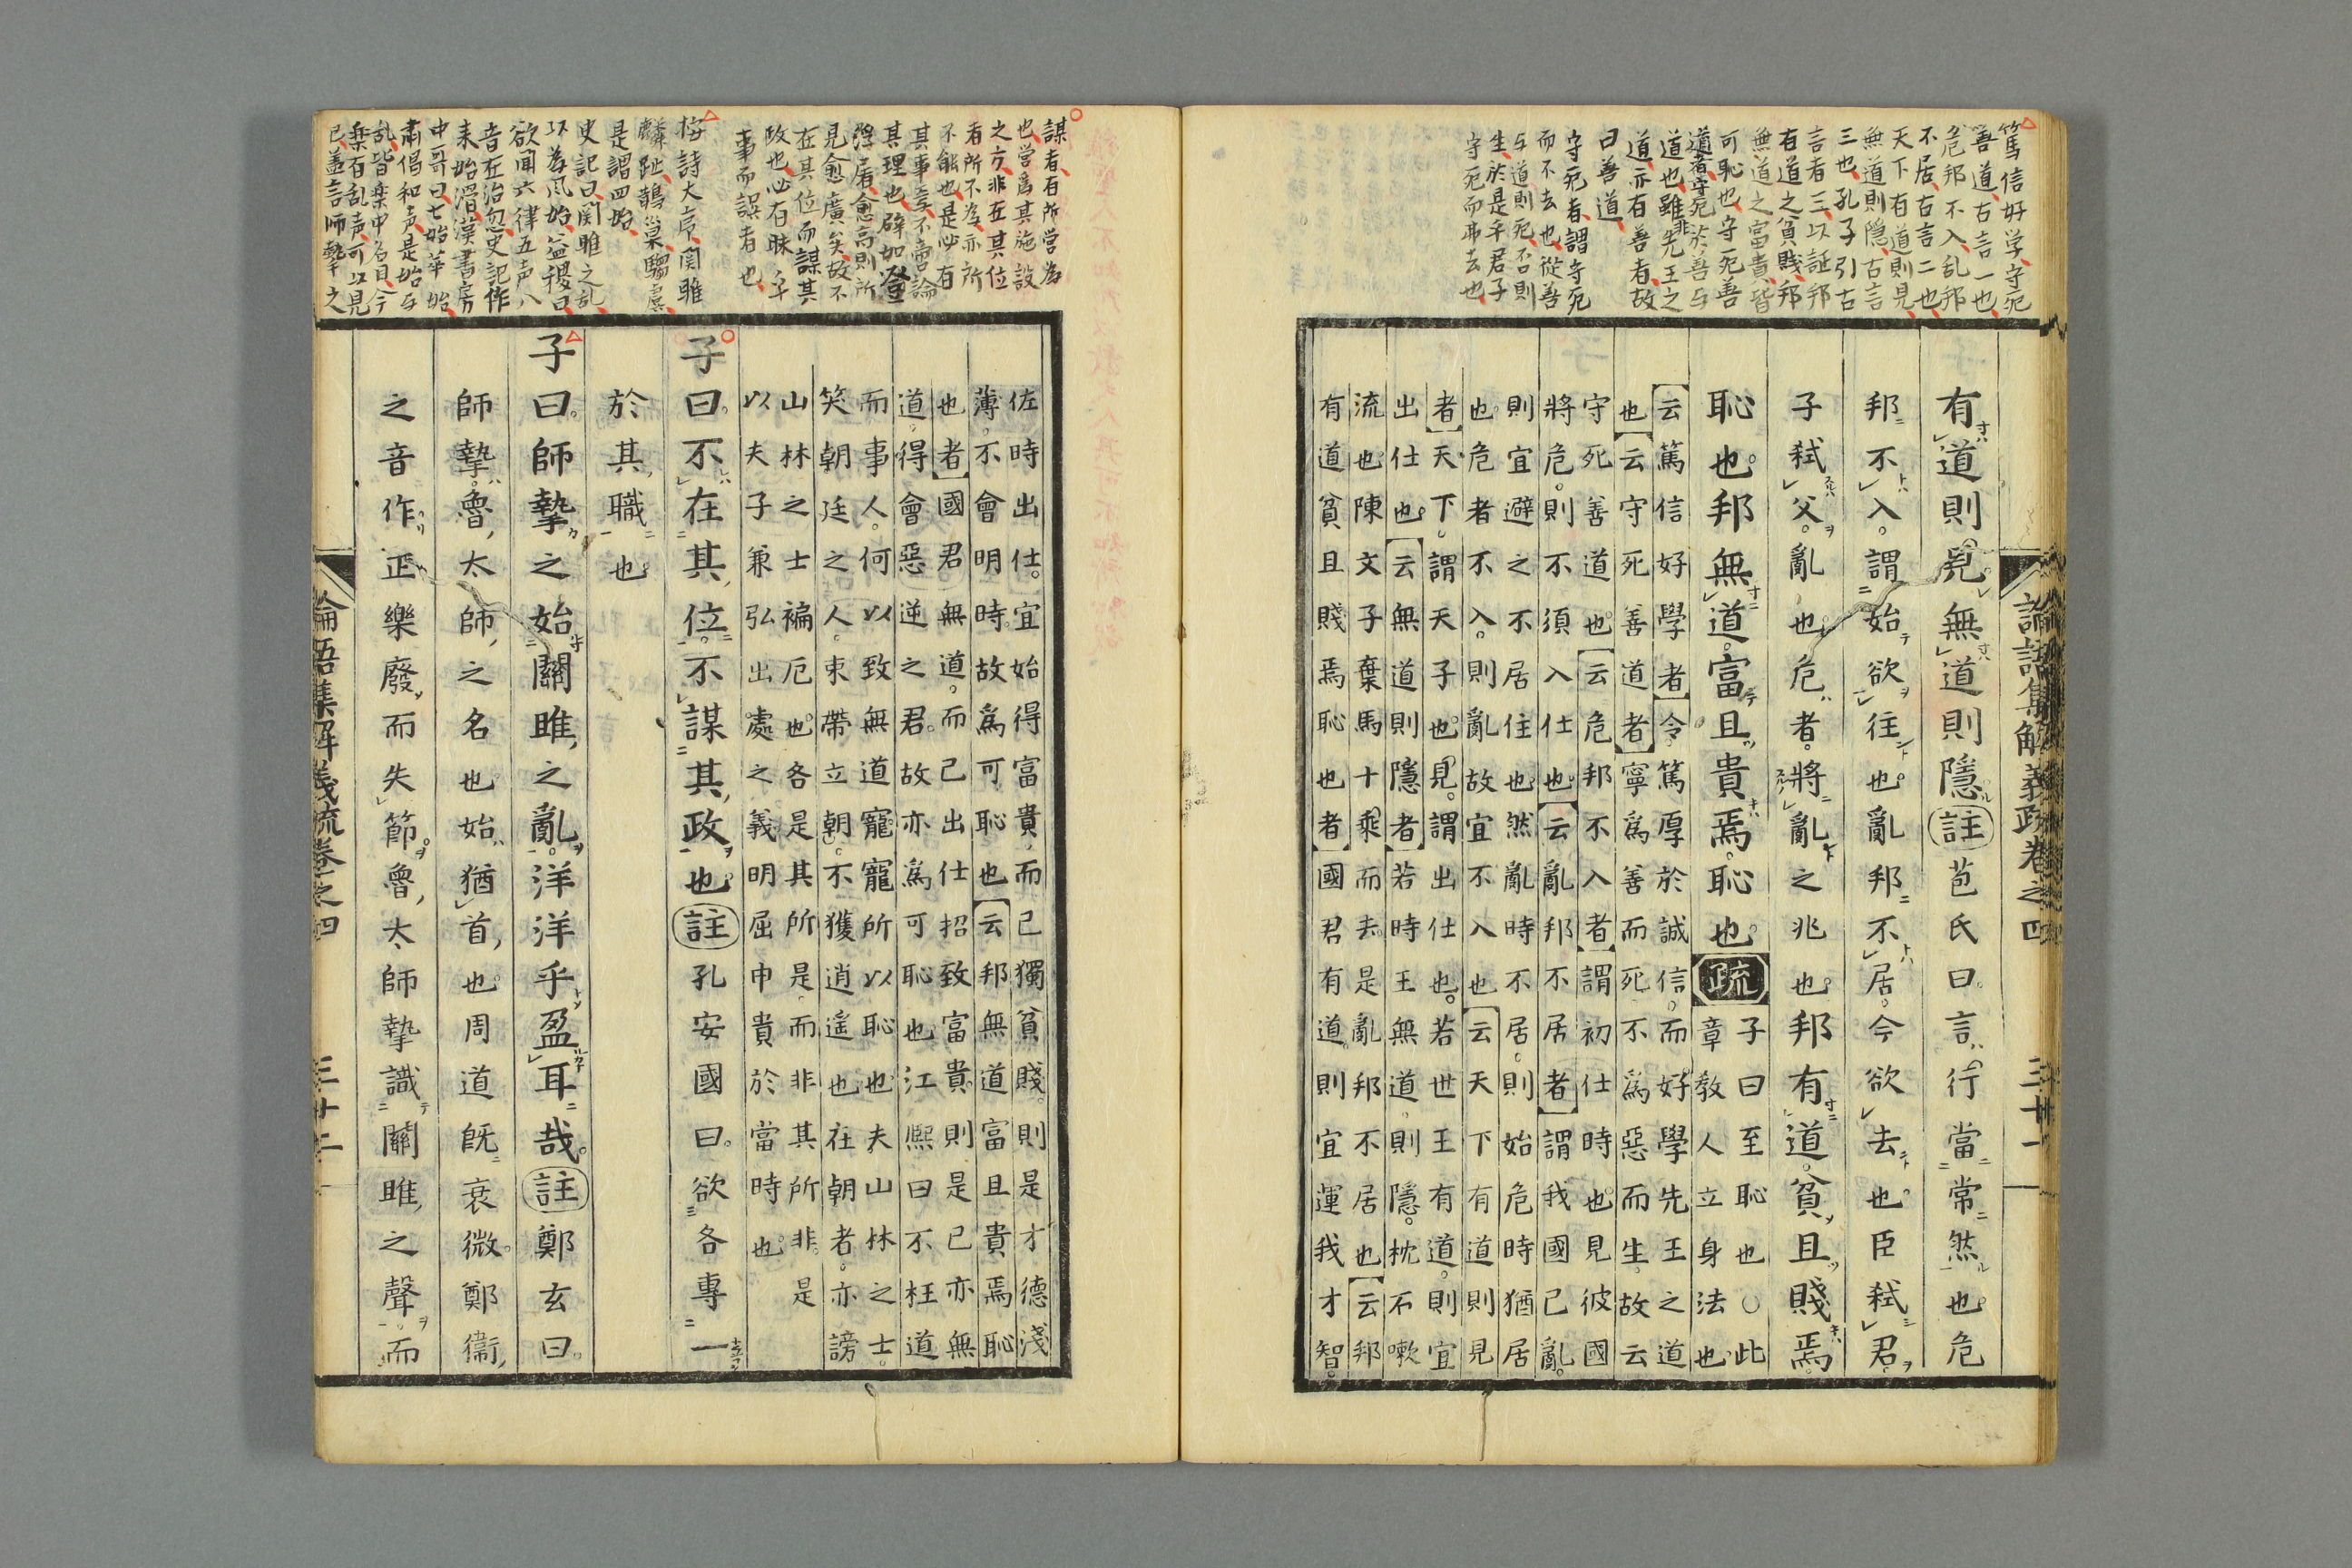 篤信好学守死
善道古言一也
危邦不入乱邦
不居古言二也
天下有道則見
無道則隠古言
三也孔子引古
言者三以証邦
有道之貧賤邦
無道之富貴皆
可恥也守死善
道者守死於善与
道也雖非先王之
道亦有善者故
曰善道
守死者謂守死
而不去也從善
与道則死否則
生於是乎君子
守死而弗去也
有道則見無道則隱註苞氏曰言行當常然也危
邦不入謂始欲往也亂邦不居今欲去也臣弒君
子弒父亂也危者將亂之兆也邦有道貧且賤焉
恥也邦無道富且貴焉恥也疏子曰至恥也○此
章教人立身法也
云篤信好學者令篤厚於誠信而好學先王之道
也云守死善道者寧爲善而死不爲惡而生故云
守死善道也云危邦不入者謂初仕時也見彼國
將危則不須入仕也云亂邦不居者謂我國已亂
則宜避之不居住也然亂時不居則始危時猶居
也危者不入則亂故宜不入也云天下有道則見
者天下謂天子也見謂出仕也若世王有道則宜
出仕也云無道則隱者若時王無道則隱枕石嗽
流也陳文子棄馬十乘而去是亂邦不居也云邦
有道貧且賤焉恥也者國君有道則宜運我才智
論語集解義疏卷之四 三十一
謀者有所営為
也営為其施設
之方非在其位
者所不為亦所
不能也是必有
其事焉不啻論
其理也辟如登
浮屠愈高則所
見愈廣矣故不
在其位而謀其
政也必有昧乎
事而誤者也
按詩大序関雎
麟趾鵲巣騶虞
是謂四始
史記曰関雎之乱
以為風始益稷曰
欲聞六律五声八
音在治忽史記作
来始滑漢書房
中哥曰七始華始
肅倡和声是始与
乱皆楽中名目今
楽有乱声可以見
已蓋言師摯之
佐時出仕宜始得富貴而已獨貧賤則是才德淺
薄不會明時故爲可恥也云邦無道富且貴焉恥
也者國君無道而己出仕招致富貴則是己亦無
道得會惡逆之君故亦爲可恥也江熙曰不枉道
而事人何以致無道寵寵所以恥也夫山林之士
笑朝廷之人束帶立朝不獲逍遙也在朝者亦謗
山林之士褊厄也各是其所是而非其所非是
以夫子兼弘出處之義明屈申貴於當時也
子曰不在其位不謀其政也註孔安國曰欲各專一
於其職也
子曰師摯之始關雎之亂洋洋乎盈耳哉註鄭玄曰
師摯魯太師之名也始猶首也周道既衰微鄭衞
之音作正樂廢而失節魯太師摯識關雎之聲而
論語集解義疏卷之四 三十二